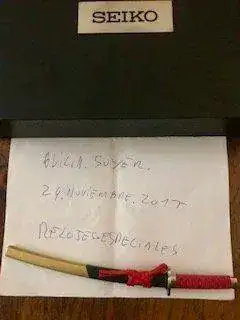 SEIKO
29. NOVIEMBRE. 2017
RELOJES ESPECIALES